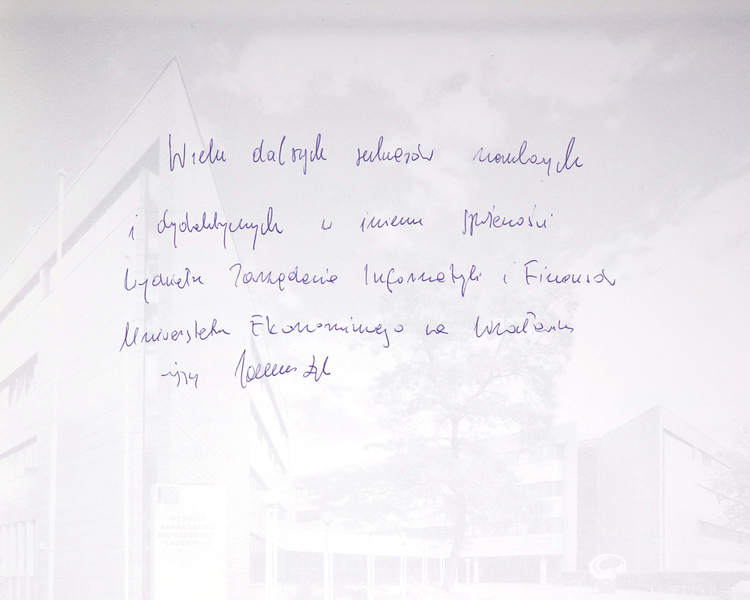 Wielu dalszych sukcesów naukowych
i dydaktycznych w imieniu społeczności
Wydziału Zarządzania Informatyki i Finansów
Uniwersytetu Ekonomicznego we Wrocławiu
życzy